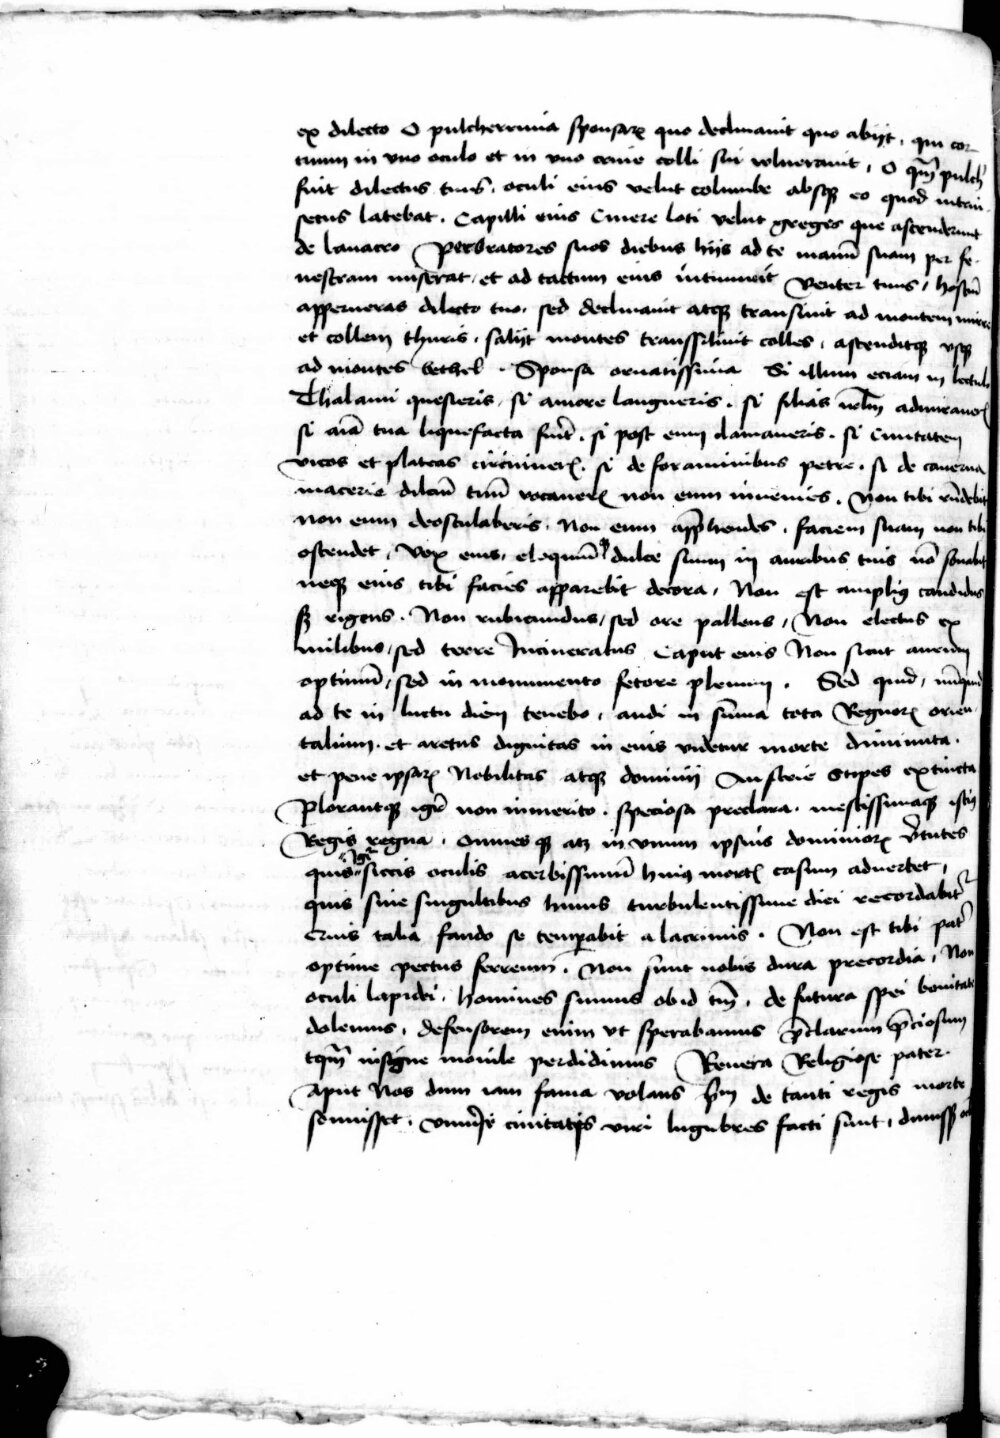 ex dilecto O pulcherrima sponsarꝫ quo declinauit quo abijt . qui cor
tuum in vno oculo et in vno crine colli sui vulnerauit , O qm̄ pulchͬ
fuit dilectus tuus . oculi eius velut columbe absqꝫ eo quod intrin
secus latebat . Capilli eius Cinere loti velut greges que ascenderunt
de lauacro suos diebus hijs ad te manū suam per fe
nestram miserat , et ad tactum eius intumuit venter tuus , hostiū
apperueras dilecto tuo . sed declinauit atqꝫ transiuit ad montem mirre
et collem thuris . salijt montes transsiliuit colles , ascenditqꝫ vsqꝫ
ad montes bethel . Sponsa ornatissima Si illum eciam in lectulo
Thalami quesieris , si amore langueris . si filias admiraueris
si aīa tua liquefacta fuit̄ . si post eum clamaueris . si Ciuitatem
vicos et plateas circuiuerꝭ . si de foraminibus petre . si de cauerna
macerie dilcm̄ tuū vocauerꝭ non eum inuenies . Non tibi rn̄debit
non eum deosculaberis . Non eum app̄hendes . faciem suam non tibi
ostendet , vox eius , eloquiūqꝫ dulce suum in auribus tuis nō sonabit
neqꝫ eius tibi facies apparebit decora , Non est ampliꝰ candidus
sꝫ rigens . Non rubicundus , sed ore pallens , Non electus ex
milibus , sed terre Incineratus Caput eius Non sicut aurum
optimū , sed in monumento fetore plenum . Sed quid , nūquid
ad te in luctu diem tenebo , audi in sūma tota Regnorꝫ orien
talium . et aretus dignitas in eius videtur morte diminuta .
et pene ipsarꝫ Nobilitas atqꝫ dominij Austrie stipes extincta
Plorantqꝫ igr̄ non inmerito . speciosa preclara . mestissimaqꝫ istiꝰ
Regis regna . omnesqꝫ in vnum ipsius dominiorꝫ v̄tutes
quis igr̄ siccis oculis acerbissimū huiꝰ mortꝭ casum aduertet ,
quis sine singultibus huius turbulentissime diei recordabitͬ
Cuius talia fando se temperabit a lacrimis . Non est tibi patͬ
optime pectus ferreum . Non sunt nobis dura precordia , Non
oculi lapidei . homines sumus ob id tm̄ . de futura spei bonitate
dolemus , defensorem enim vt sperabamus p̄clarum p̄ciosum
tqm̄ insigne monile perdidimus Reuera Religiose pater .
Aput Nos dum iam fama volans de tanti regis morte
sonuisset . ciuitatis viri lugubres facti sunt ,